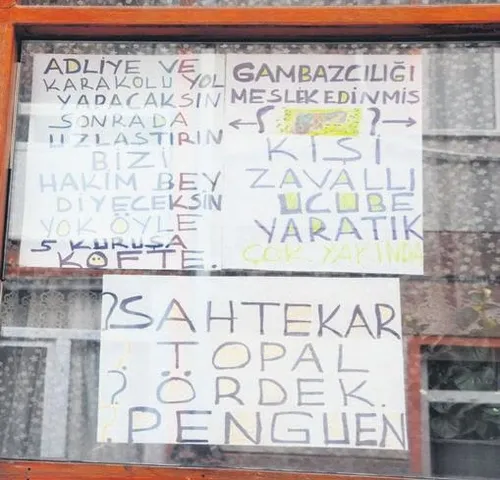 ADLİYE VE
KARAKOLU YOL
YAPACAKSIN
SONRADA
UZLASTIRIN
BİZİ
HAKİM BEY
DİYECEKSİN
YOK ÖYLE
5 KURUŞA
KÖFTE.
GAMBAZCILIĞI
MESLEK EDİNMİS
KİŞİ
ZAVALLI
UCUBE
YARATIK
ÇOK YAYINDA
?SAHTEKAR
TOPAL
? ÖRDEK.
PENGUEN